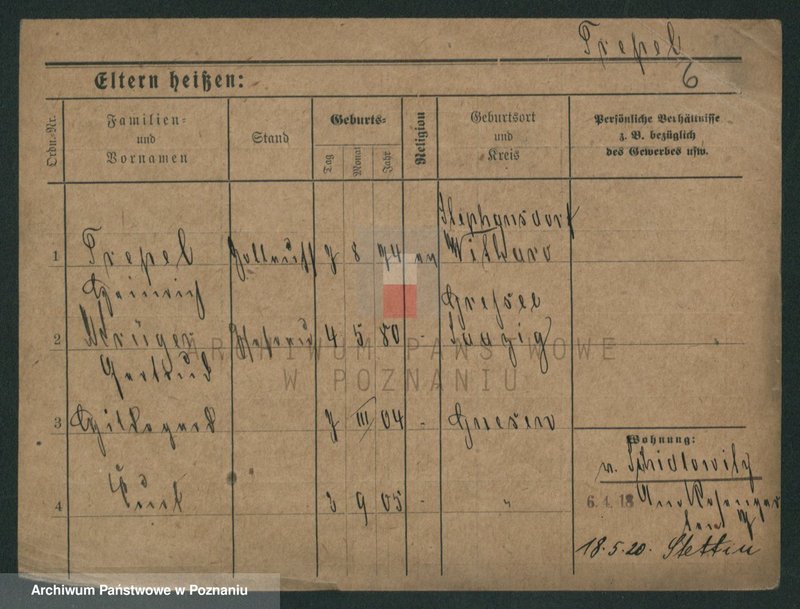 Trepel
6
Eltern heißen:
Ordn.-Nr.
Familien-
und
Vornamen
Stand
Geburts-
Tag
Monat
Jahr
Religion
Geburtsort
und
Kreis
Persönliche Verhältnisse
z. B. bezüglich
des Gewerbes usw.
Stephansdorf
1 Trepel 7 8 74 ev
Heinrich
2 Krüger Ehefrau 4 5 80 -
Gertrud
3 Hildegard 7 III 04 - Gnesen
4 Kurt 3 9 05 - "
Wohnung:
v.
6.4.18 Am Rosengar
ten 7
18.5.20. Stettin
ARCHIWUM PAŃSTWOWE
W POZNANIU
Archiwum Państwowe w Poznaniu